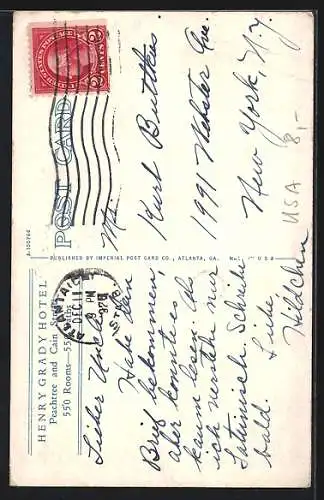 HENRY GRADY HOTEL
Peachtree and Cain Streets
550 Rooms—550 Baths
Lieber Uncle
Habe Dein
Brief bekommen,
aber konnte es
kaum lesen. Da
ich verstehe nur
Lateinisch. Schreibe
bald. Liebe
Hildchen
PUBLISHED BY IMPERIAL POST CARD CO., ATLANTA, GA.
A-100966
POST CARD
ATLANTA
DEC 11
9 PM
UNITED STATES POSTAGE
2 CENTS 2
Mr.
Kurt Buttkus.
1991 Webster Ave.
New York, N.Y.
USA 8,-